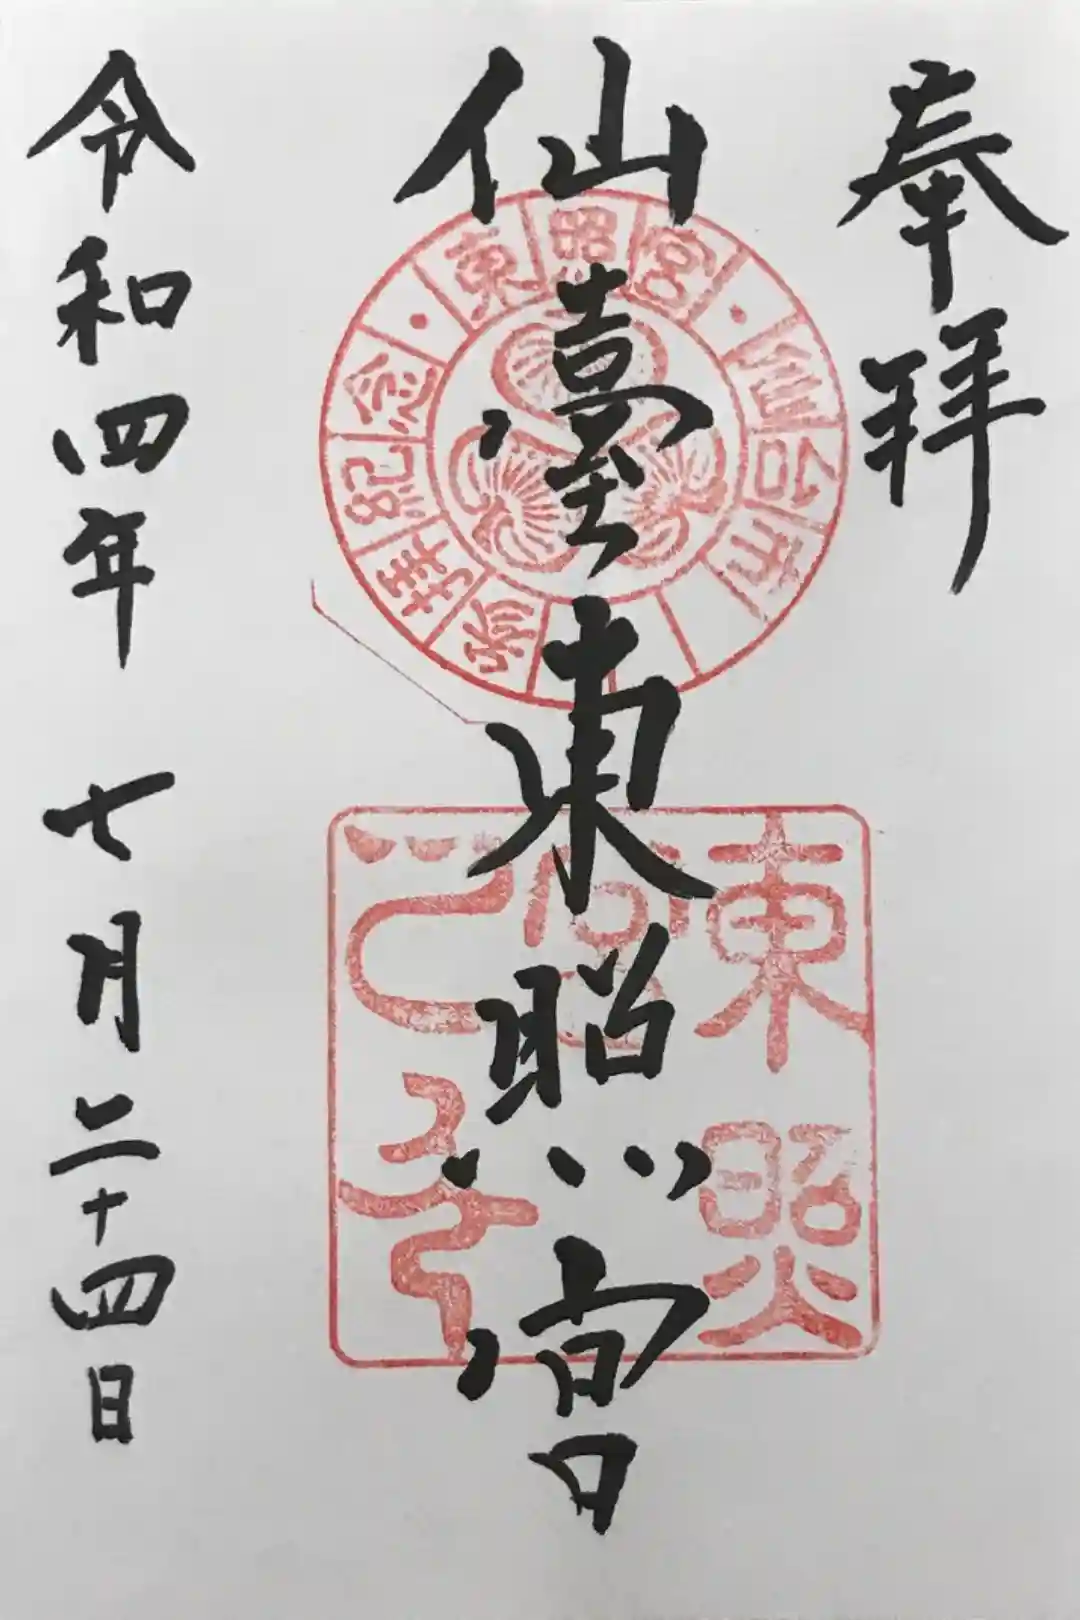 奉拝
仙臺東照宮
東照宮・仙台市
参拝紀念・
東照
宮
令和四年 七月二十四日